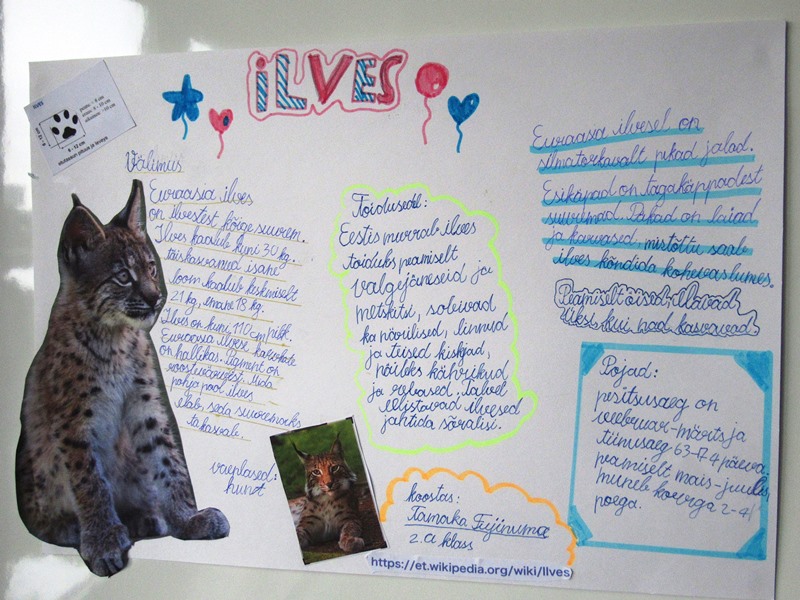 ILVES
Välimus
Euraasia ilves
on ilvestest kõige suurem.
Ilves kaalub kuni 30 kg.
täiskasvanud isane
loom kaalub keskmiselt
21 kg, emane 18 kg.
Ilves on kuni 110 cm pikk.
Euraasia ilvese karvkate
on hallikas. Pigment on
roostevärvest. Mida
põhja pool ilves
elab, seda suuremaks
ta kasvab.
vaenlased:
hunt
Toidusedel:
Eestis murrab ilves
toiduks peamiselt
valgejäneseid ja
metskitsi, söleivad
ka närilised, linnud
ja teised kiskjad,
näiteks kährikud
ja rebased. Talvel
eelistavad ilvesed
jahtida sõralisi.
koostas:
Tamaka Fujinuma
2.a klass
https://et.wikipedia.org/wiki/Ilves
Euraasia ilvesel on
silmatorkavalt pikad jalad.
Esikäpad on tagakäppadest
suuremad. Päkad on laiad
ja karvased, mistõttu saab
ilves kõndida kohevas lumes.
Peamiselt öisid elavad
üksi, kui nad kasvavad
Pojad:
peritsusaeg on
veebruar-märts ja
tiinusaeg 63-74 päeva.
peamiselt mais-juulis,
muneb korraga 2-4
poega.